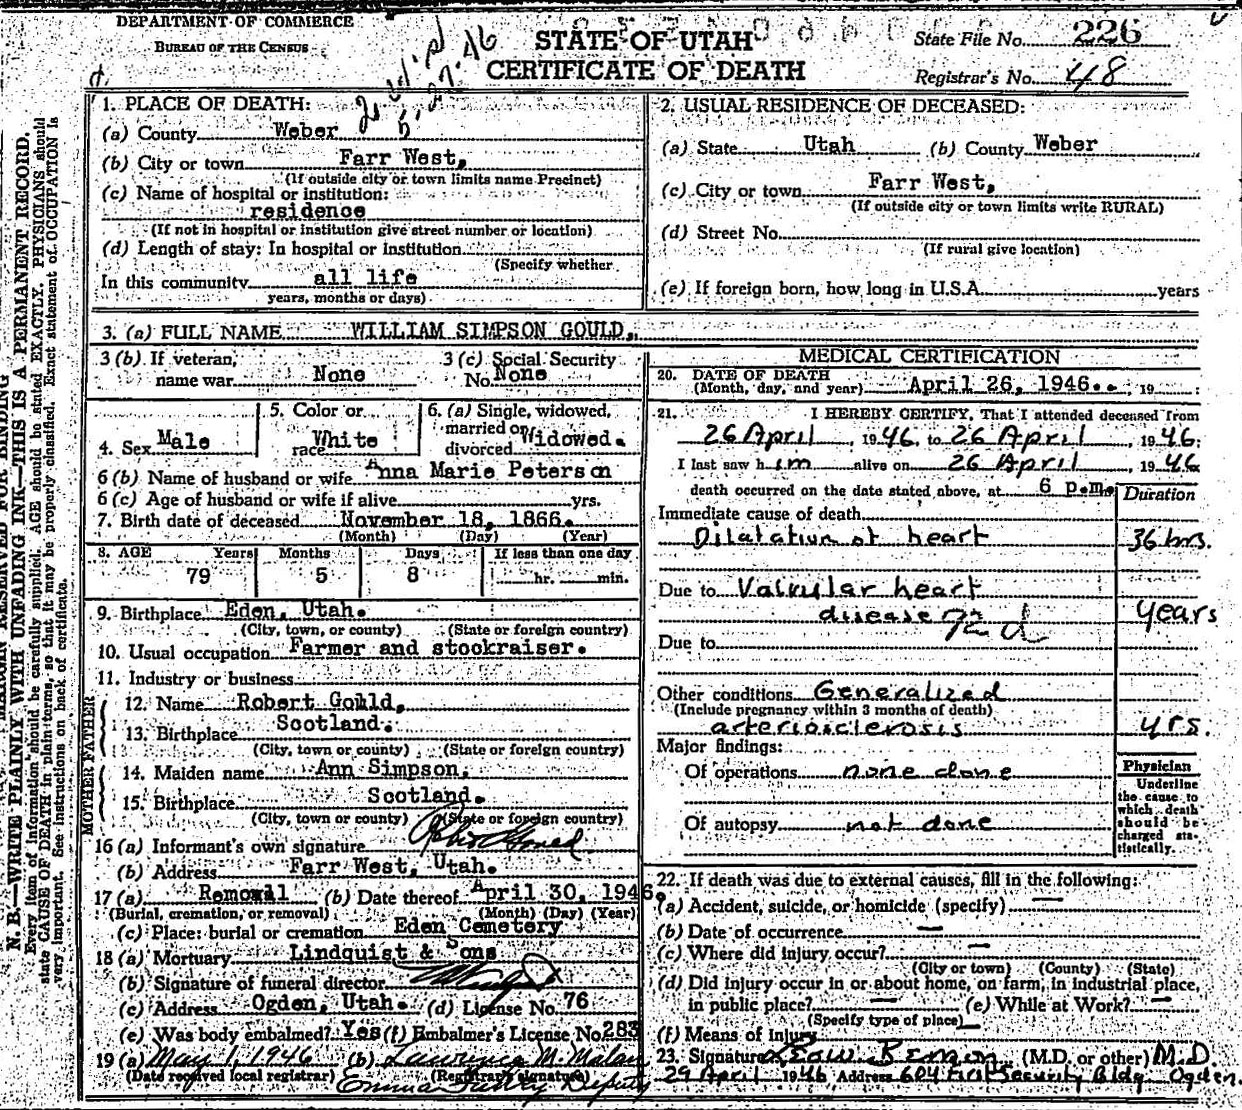 DEPARTMENT OF COMMERCE
BUREAU OF THE CENSUS
STATE OF UTAH
CERTIFICATE OF DEATH
State File No. 226
Registrar's No. 48
N. B.—WRITE PLAINLY WITH UNFADING INK—THIS IS A PERMANENT RECORD.
Every item of information should be carefully supplied. AGE should be stated EXACTLY. PHYSICIANS should
state CAUSE OF DEATH in plain terms, so that it may be properly classified. Exact statement of OCCUPATION is
very important. See instructions on back of certificate.
1. PLACE OF DEATH:
(a) County Weber
(b) City or town Farr West,
(If outside city or town limits name Precinct)
(c) Name of hospital or institution:
residence
(If not in hospital or institution give street number or location)
(d) Length of stay: In hospital or institution
(Specify whether
In this community all life
years, months or days)
2. USUAL RESIDENCE OF DECEASED:
(a) State Utah (b) County Weber
(c) City or town Farr West,
(If outside city or town limits write RURAL)
(d) Street No.
(If rural give location)
(e) If foreign born, how long in U.S.A. years
3. (a) FULL NAME WILLIAM SIMPSON GOULD,
3 (b) If veteran, name war None
3 (c) Social Security No. None
4. Sex Male
5. Color or race White
6. (a) Single, widowed, married or divorced Widowed.
6 (b) Name of husband or wife Anna Marie Peterson
6 (c) Age of husband or wife if alive yrs.
7. Birth date of deceased November 18, 1866.
(Month) (Day) (Year)
8. AGE Years Months Days If less than one day
79 5 8 hr. min.
9. Birthplace Eden, Utah.
(City, town, or county) (State or foreign country)
10. Usual occupation Farmer and stockraiser.
11. Industry or business
FATHER
12. Name Robert Gould,
13. Birthplace Scotland.
(City, town or county) (State or foreign country)
MOTHER
14. Maiden name Ann Simpson,
15. Birthplace Scotland.
(City, town or county) (State or foreign country)
16 (a) Informant's own signature
(b) Address Farr West, Utah.
17 (a) Removal (b) Date thereof April 30, 1946.
(Burial, cremation, or removal) (Month) (Day) (Year)
(c) Place: burial or cremation Eden Cemetery
18 (a) Mortuary Lindquist & Sons
(b) Signature of funeral director
(c) Address Ogden, Utah. (d) License No. 76
(e) Was body embalmed? Yes (f) Embalmer's License No. 283
19 (a) May 1, 1946 (b) Lawrence M. Malan
(Date received local registrar) (Registrar's signature)
Deputy
MEDICAL CERTIFICATION
20. DATE OF DEATH
(Month, day, and year) April 26, 1946.. , 19
21. I HEREBY CERTIFY, That I attended deceased from
26 April, 1946, to 26 April, 1946.
I last saw him alive on 26 April, 1946
death occurred on the date stated above, at 6 p.m. Duration
Immediate cause of death
Dilatation of heart 36 hrs.
Due to Valvular heart
disease 92 d years
Due to
Other conditions Generalized
(Include pregnancy within 3 months of death)
arteriosclerosis yrs.
Major findings:
Of operations none done
Of autopsy not done
Physician
Underline
the cause to
which death
should be
charged sta-
tistically.
22. If death was due to external causes, fill in the following:
(a) Accident, suicide, or homicide (specify) —
(b) Date of occurrence —
(c) Where did injury occur? —
(City or town) (County) (State)
(d) Did injury occur in or about home, on farm, in industrial place,
in public place? — (e) While at Work? —
(Specify type of place)
(f) Means of Injury
23. Signature (M.D. or other) M.D.
29 April 1946 Address 604 First Security Bldg. Ogden.